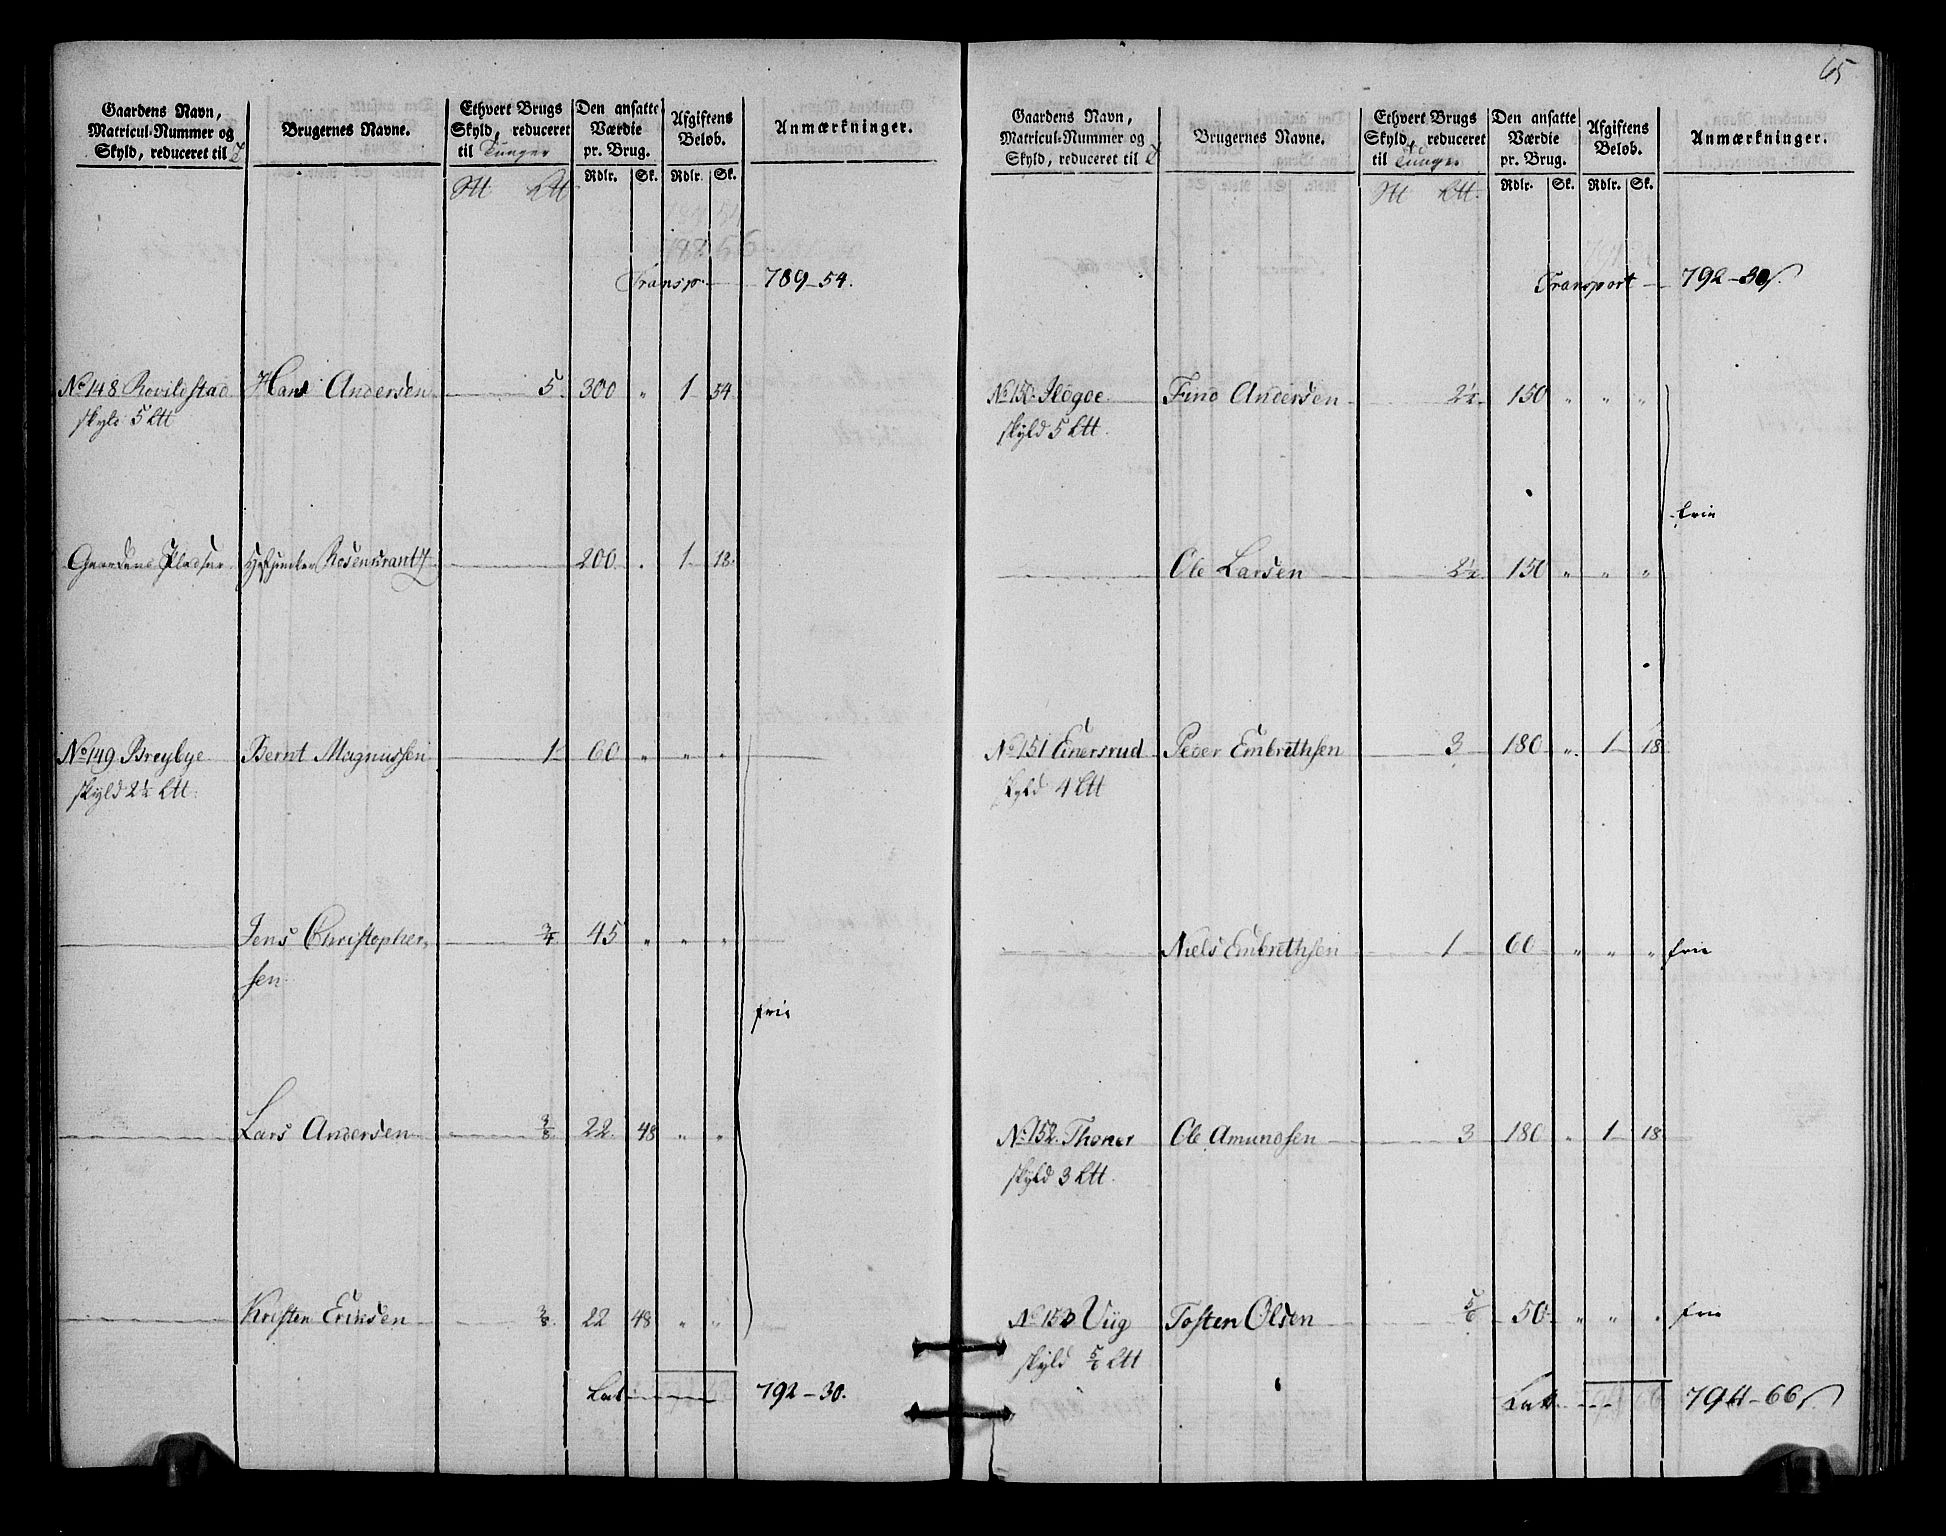 Gaardens Navn,
Matricul-Nummer og
Skyld, reduceret til
Brugernes Navne.
Ethvert Brugs
Skyld, reduceret
til Tunger
Den ansatte
Værdie
pr. Brug.
Afgiftens
Beløb.
Anmærkninger.
Rdlr. Sk. Rdlr. Sk.
Ltt
Transp. 789-54.
No 148 Rovildstad Hans Andersen 5. 300 " 1 54
skyld 5 Ltt
Gaardens Pladser Rosencrantz 200 . 1 18.
No 149 Breybye Bernt Magnussen 1 60 " " "
skyld 2½ Ltt.
Jens Christopher- ¾ 45 " " "
sen
frie
Lars Andersen ⅜ 22. 48 " "
Kristen Ericksen ⅜ 22 48 " "
Lat 792-30.
65
Gaardens Navn,
Matricul-Nummer og
Skyld, reduceret til
Brugernes Navne.
Ethvert Brugs
Skyld, reduceret
til Tunger
Den ansatte
Værdie
pr. Brug.
Afgiftens
Beløb.
Anmærkninger.
Rdlr. Sk. Rdlr. Sk.
Ltt.
Transport 792-30
No 150 Andersen 2½ 150 " " "
skyld 5 Ltt.
frie
Ole Larsen 2½ 150 " " "
No 151 Einersrud Peder Embrethsen 3 180 " 1 18
skyld 4 Ltt
Niels Embrethsen 1 60 " " " frie
No 152 Thoner Ole Amundsen 3 180 " 1 18
skyld 3 Ltt.
No 153 Viig Tosten Olsen ⅚ 50 " " " frie
skyld ⅚ Ltt
Lat. 794-66